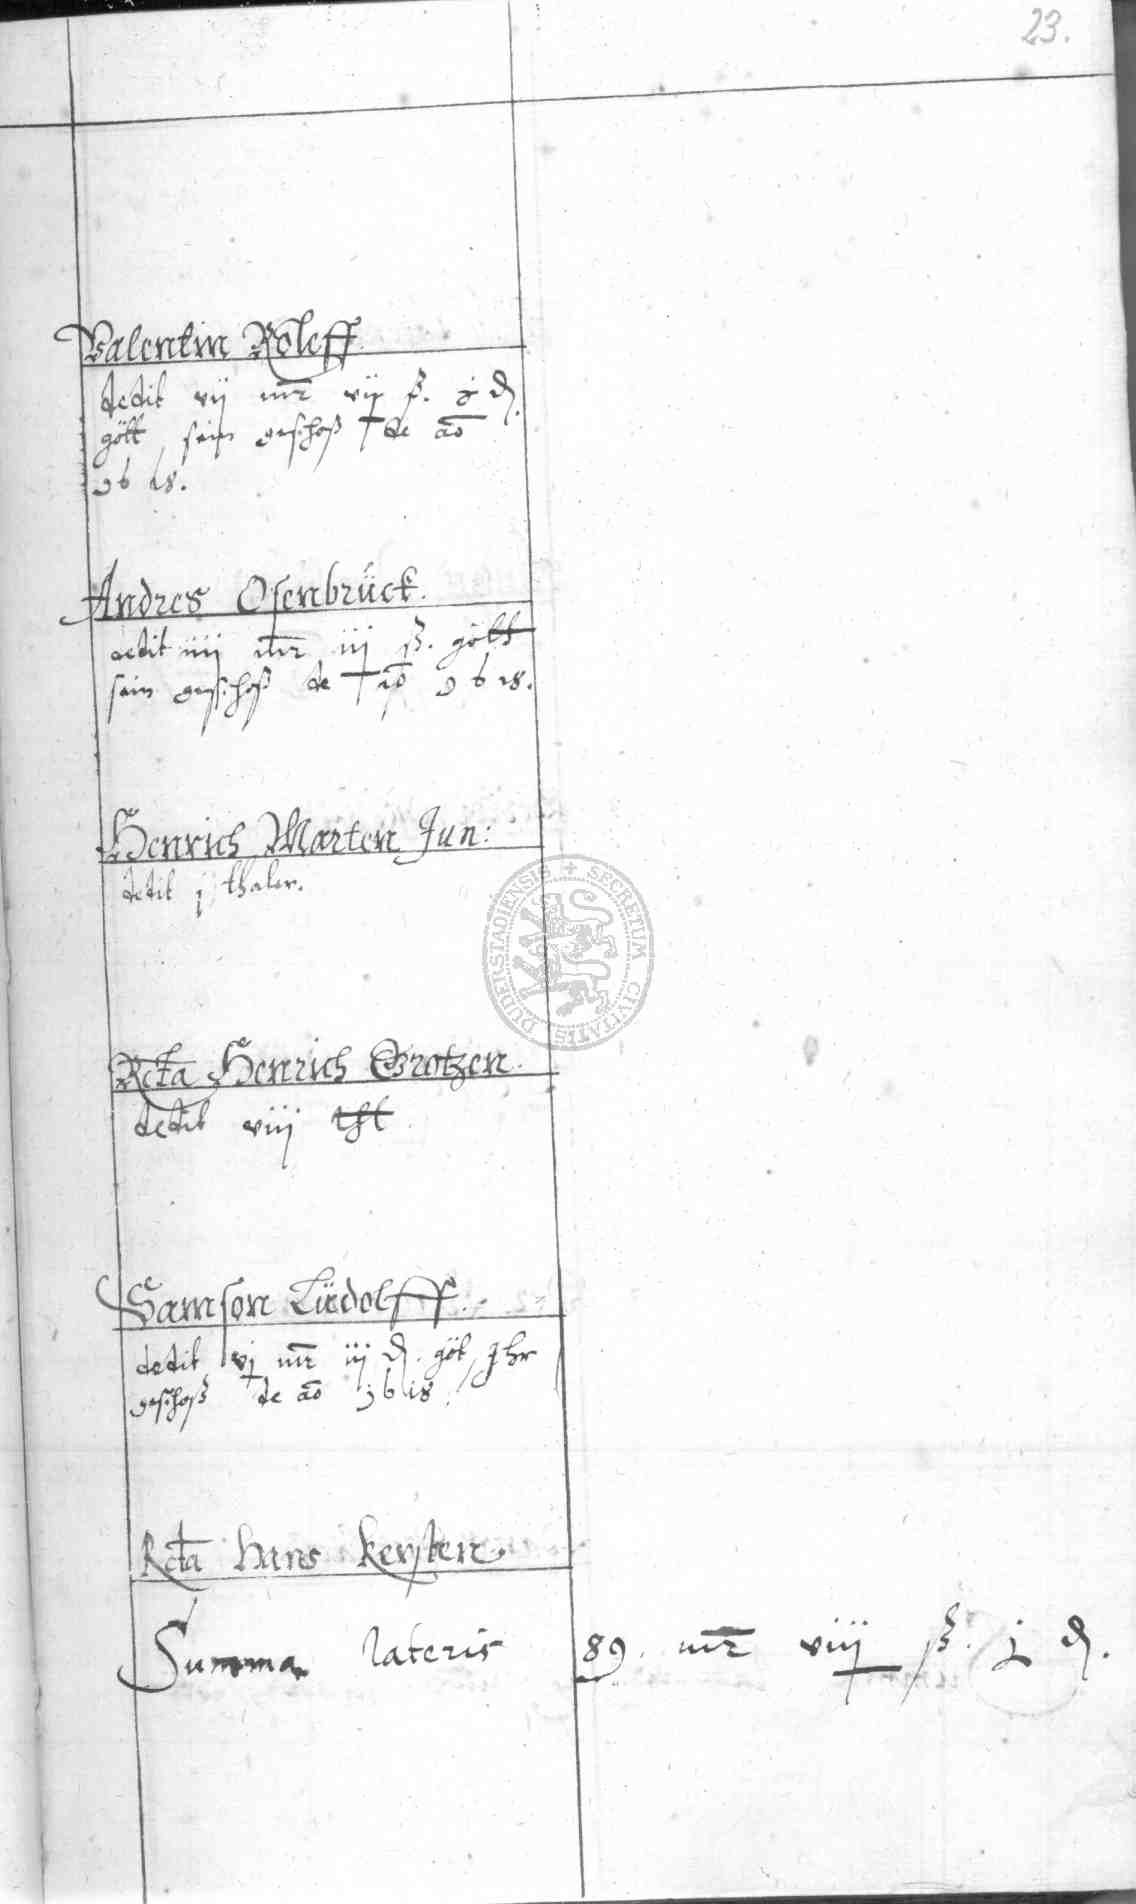 23.
Valentin Roleff
dedit vij mr vij ß. j d
gött sein geschoß de ao
1618.
Andres Osenbrück.
dedit iiij mr iij ß. gött
sein geschoß de ao 1618.
Henrich Marten Jun:
dedit j thaler.
Rcta Henrich Grotzen.
dedit viij thl
Samson Lüdolff.
dedit vj mr iij d. göt Ihr
geschoß de ao 1618.
Rcta Hans Kersten.
Summa lateris 89. mr viij ß. j d.
SECRETUM CIVITATIS DUDERSTADIENSIS